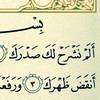 بِسْ
أَلَمْ نَشْرَحْ لَكَ صَدْرَكَ
أَنقَضَ ظَهْرَكَ ٣ وَرَفَعْ